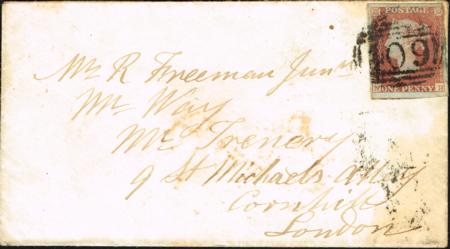 POSTAGE
60
ONE PENNY
Mr R Freeman Junr
Mr Way
Mrs Trenery
9 St Michaels Alley
Cornhill
London